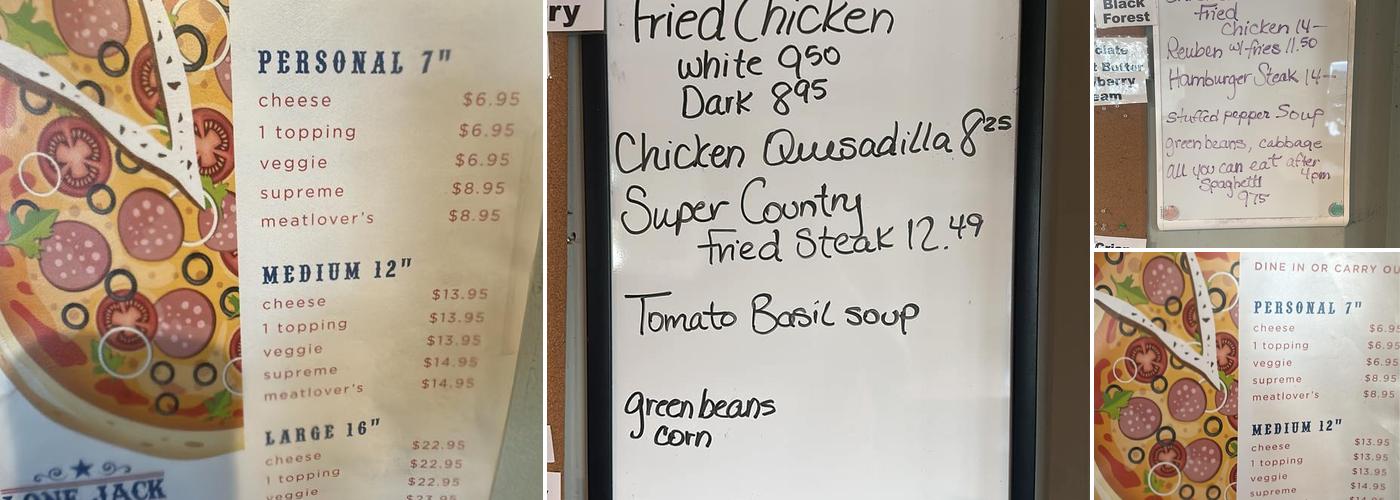 PERSONAL 7"
cheese $6.95
1 topping $6.95
veggie $6.95
supreme $8.95
meatlover's $8.95
MEDIUM 12"
cheese $13.95
1 topping $13.95
veggie $13.95
supreme $14.95
meatlover's $14.95
LARGE 16"
cheese $22.95
1 topping $22.95
veggie $22.95
LONE JACK
ry
Fried Chicken
white 950
Dark 895
Chicken Quesadilla 825
Super Country
fried Steak 12.49
Tomato Basil soup
green beans
corn
Black
Forest
fried
chicken 14-
Reuben w/ fries 11.50
Hamburger Steak 14-
stuffed pepper Soup
green beans, cabbage
all you can eat after
4pm
Spaghetti
975
DINE IN OR CARRY OU
PERSONAL 7"
cheese $6.95
1 topping $6.95
veggie $6.95
supreme $8.95
meatlover's $8.95
MEDIUM 12"
cheese $13.95
1 topping $13.95
veggie $13.95
supreme $14.95